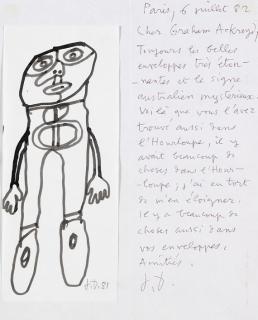 Paris, 6 juillet 82
Cher Graham Ackroyd,
Toujours les belles
enveloppes très éton-
nantes et le signe
australien mystérieux.
Voilà que vous l'avez
trouvé aussi dans
l'Hourloupe, il y
avait beaucoup de
choses dans l'Hour-
loupe ; j'ai eu tort
de m'en éloigner.
Il y a beaucoup de
choses aussi dans
vos enveloppes.
Amitiés.
J. D.
J. D. 81